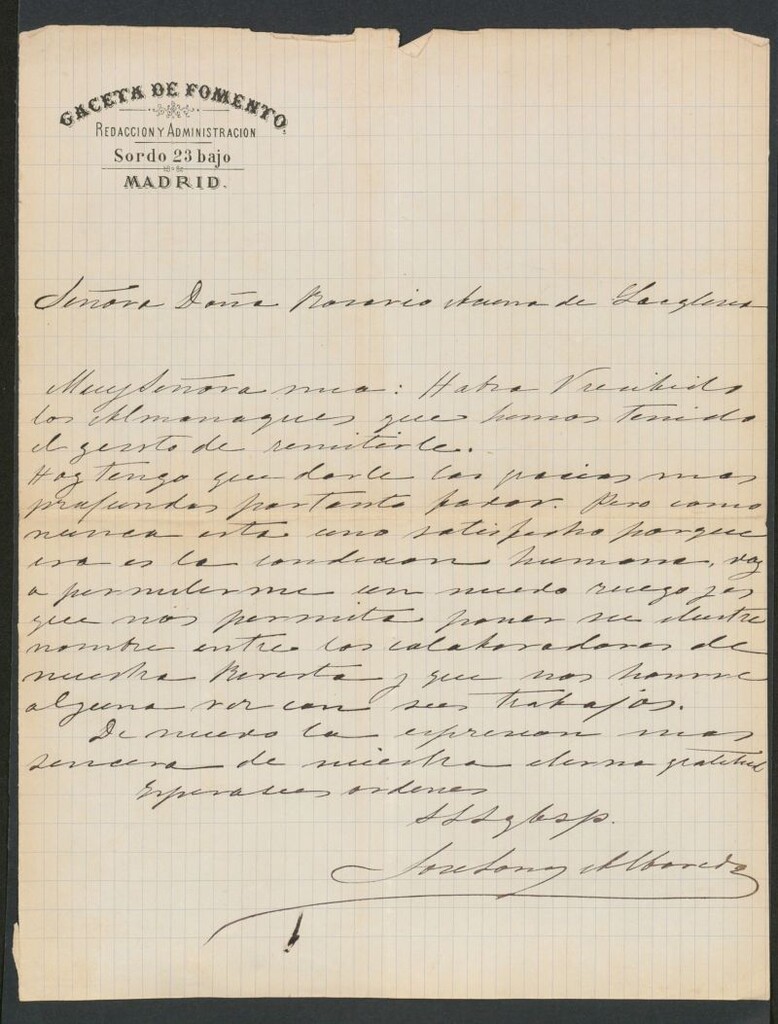 GACETA DE FOMENTO,
REDACCION Y ADMINISTRACION
Sordo 23 bajo
MADRID.
Señora Doña Rosario Acuna de Laiglesia
Muy Señora mia: Habra V recibido
los Almanaques que hemos tenido
el gusto de remitirle.
Hoy tengo que darle las gracias mas
profundas por tanto favor. Pero como
nunca esta uno satisfecho porque
esa es la condicion humana, voy
a permitirme un nuevo ruego y es
que nos permita poner su ilustre
nombre entre los colaboradores de
nuestra Revista y que nos honre
alguna vez con sus trabajos.
De nuevo la espresion mas
sincera de nuestra eterna gratitud
Espera sus ordenes
SSS q b s p.
Jose